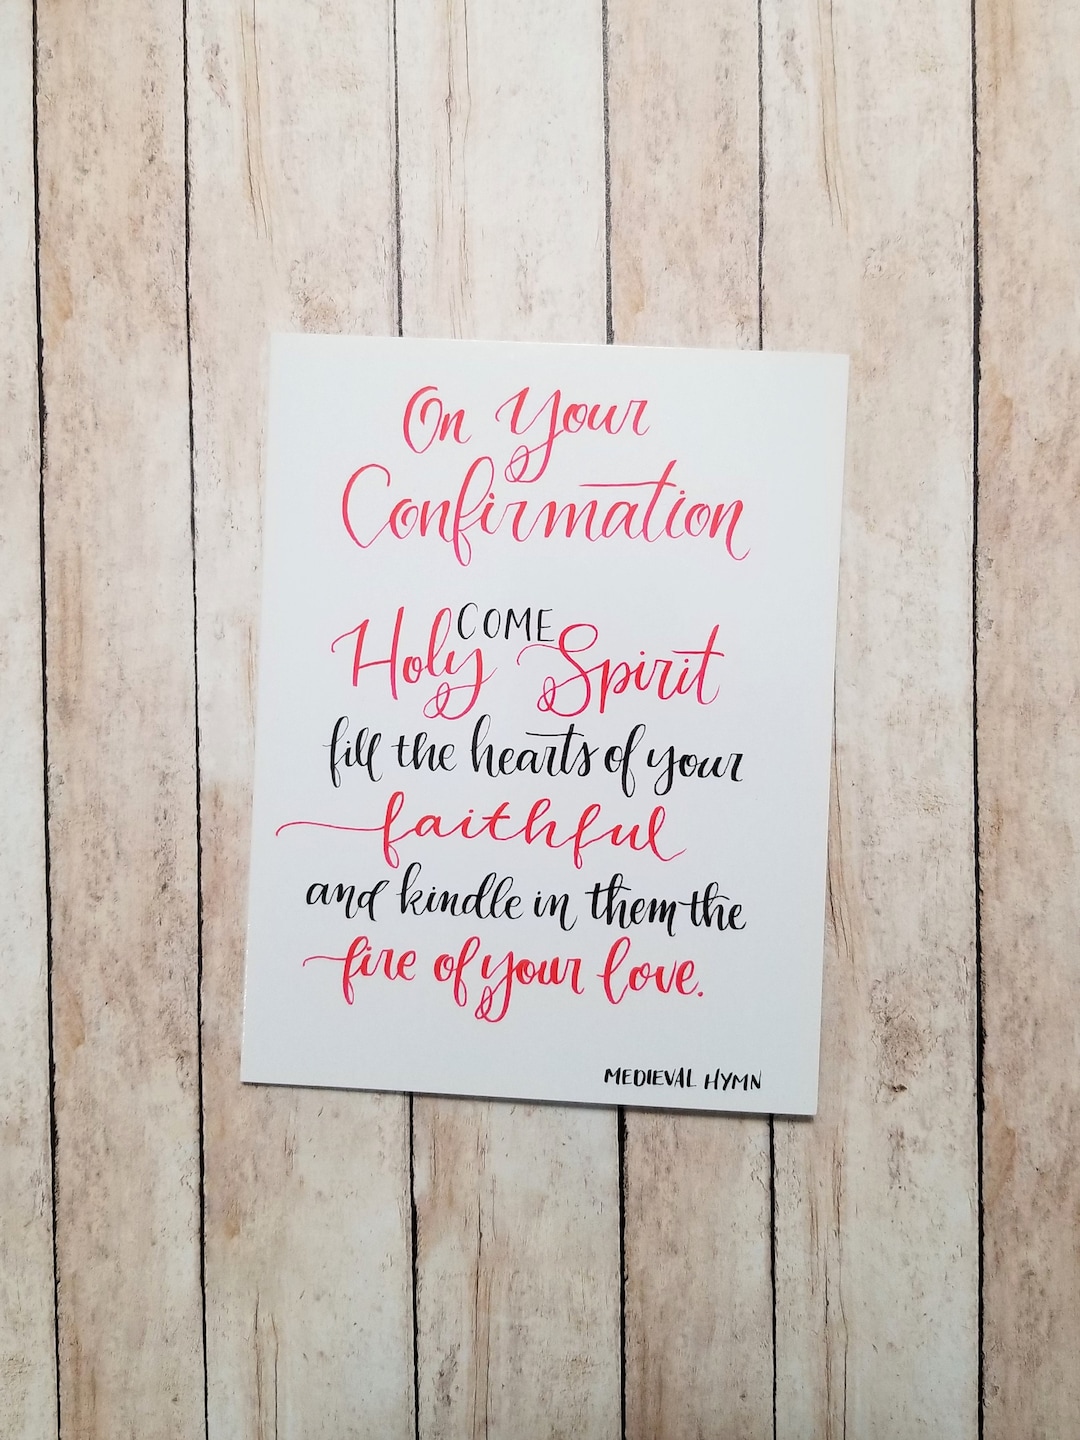 On Your
Confirmation
COME
Holy Spirit
fill the hearts of your
faithful
and kindle in them the
fire of your love.
MEDIEVAL HYMN